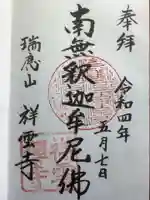 奉拝
令和四年
五月七日
南無釈迦牟尼佛
瑞應山
祥雲寺